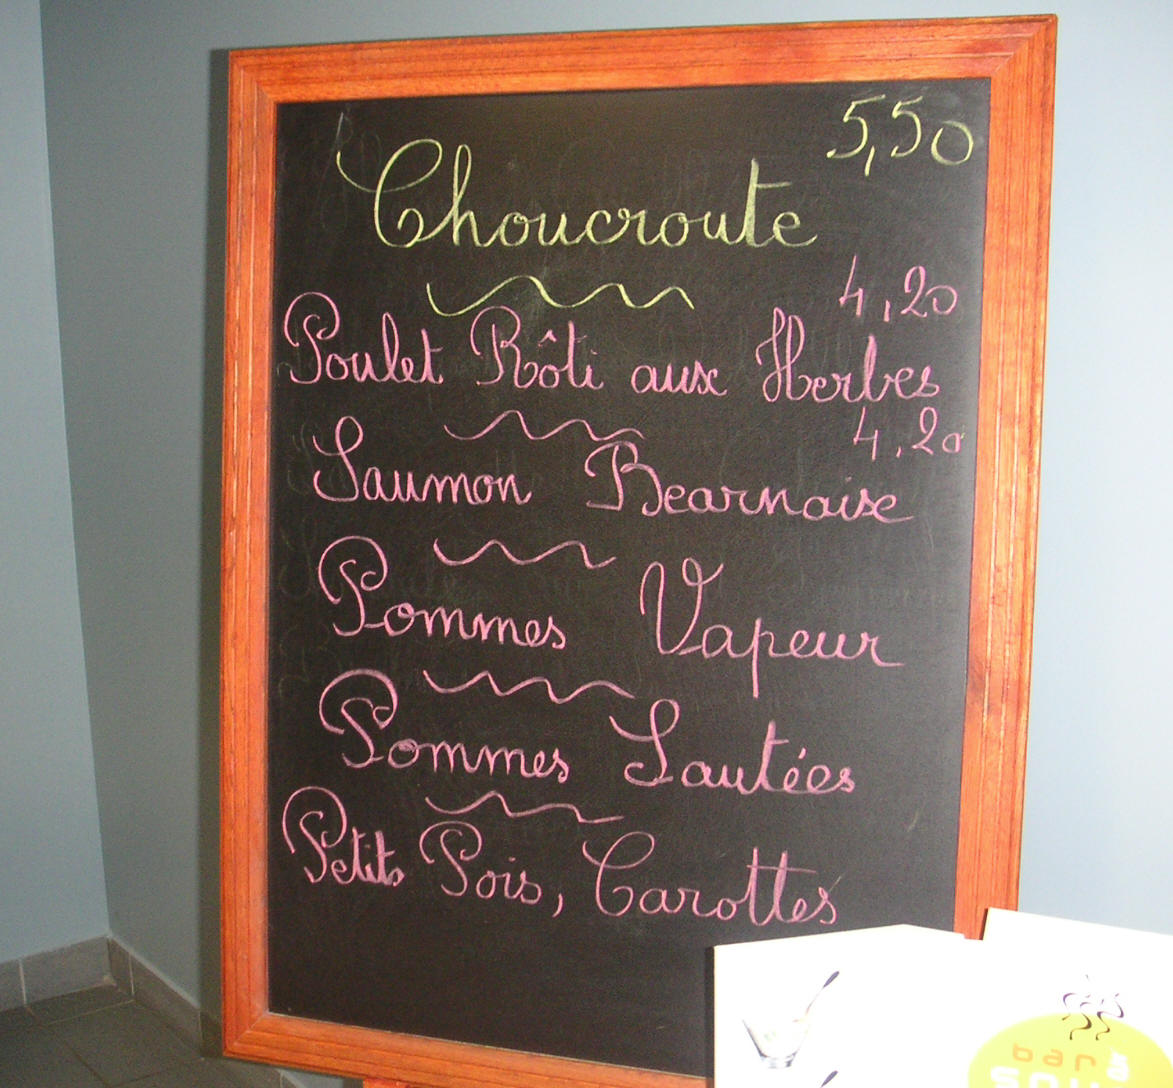 5,50
Choucroute
4,20
Poulet Rôti aux Herbes
4,20
Saumon Bearnaise
Pommes Vapeur
Pommes Sautées
Petits Pois, Carottes
bar